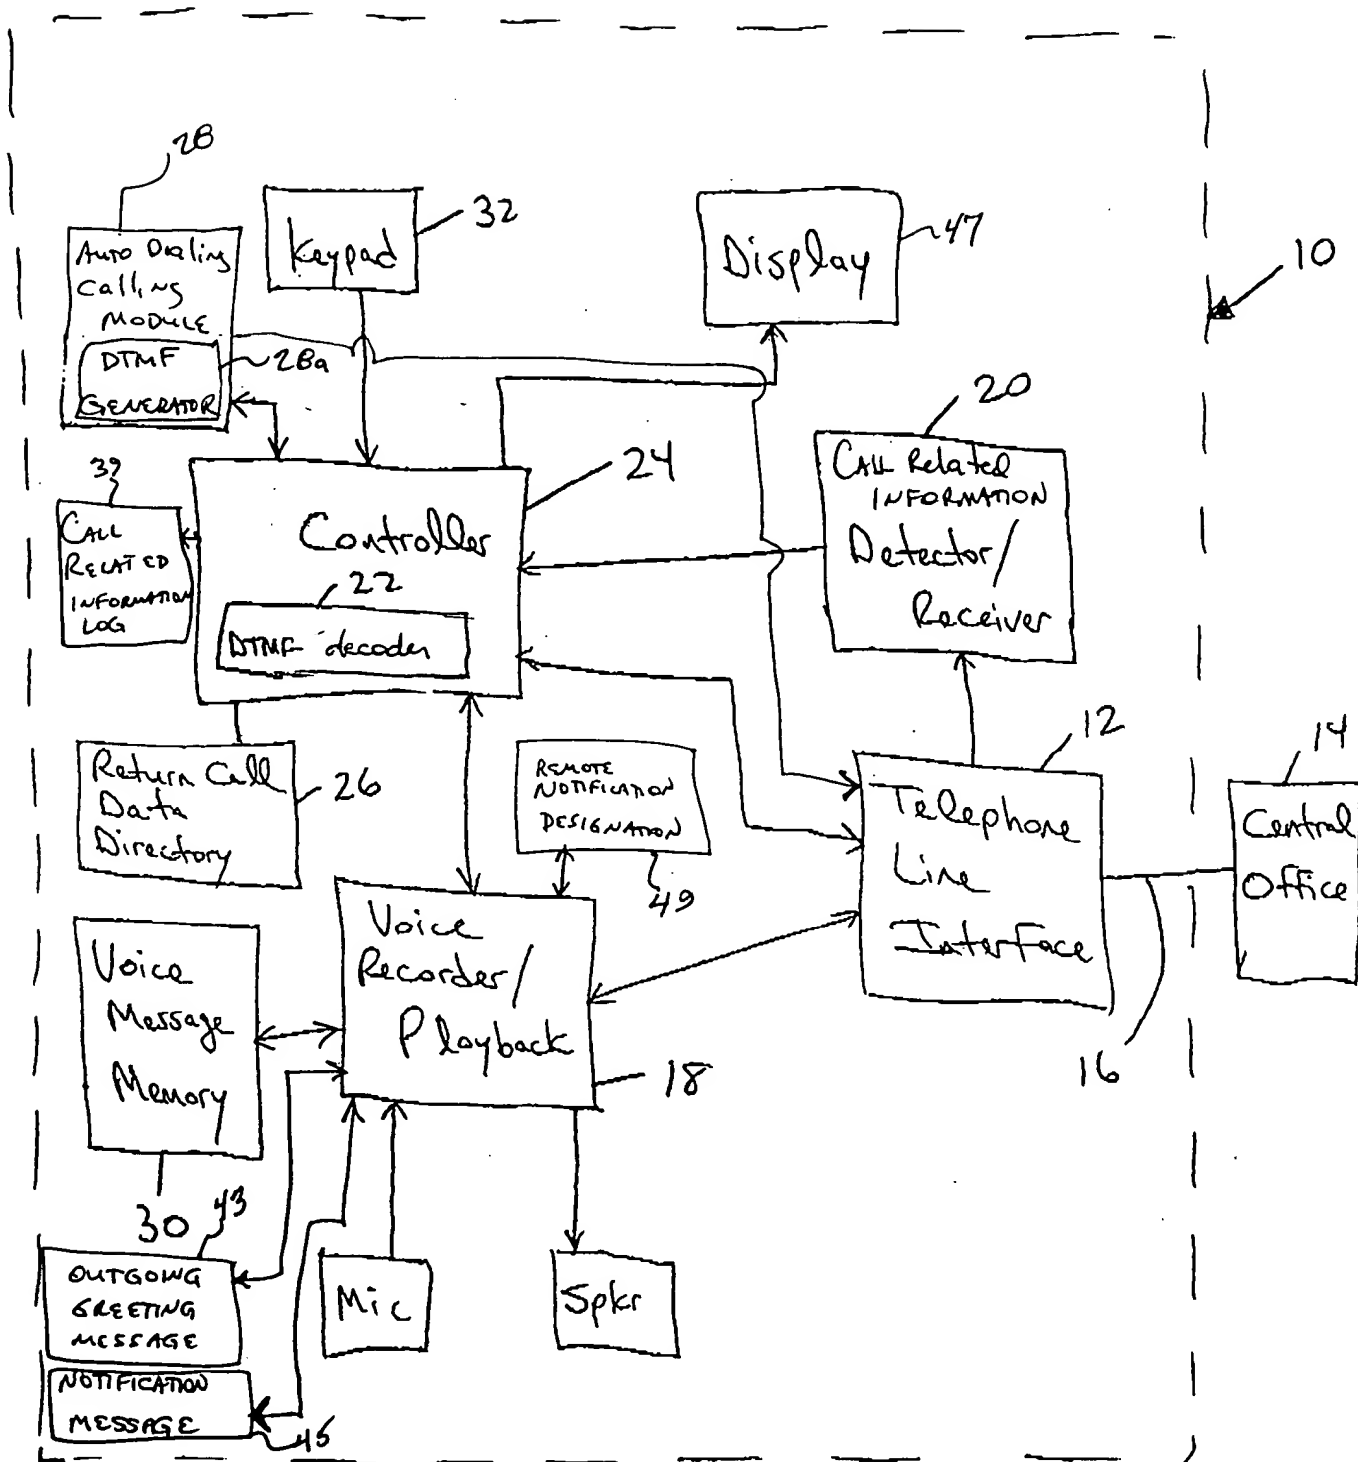 28
Auto Dialing
Calling
MODULE
DTMF
GENERATOR
28a
Keypad
32
Display
47
10
20
CALL Related
INFORMATION
Detector/
Receiver
24
Controller
22
DTMF decoder
39
CALL
RELATED
INFORMATION
LOG
Return Call
Data
Directory
26
REMOTE
NOTIFICATION
DESIGNATION
49
12
Telephone
Line
Interface
14
Central
Office
16
Voice
Message
Memory
30
Voice
Recorder/
Playback
18
43
OUTGOING
GREETING
MESSAGE
Mic
Spkr
NOTIFICATION
MESSAGE
45